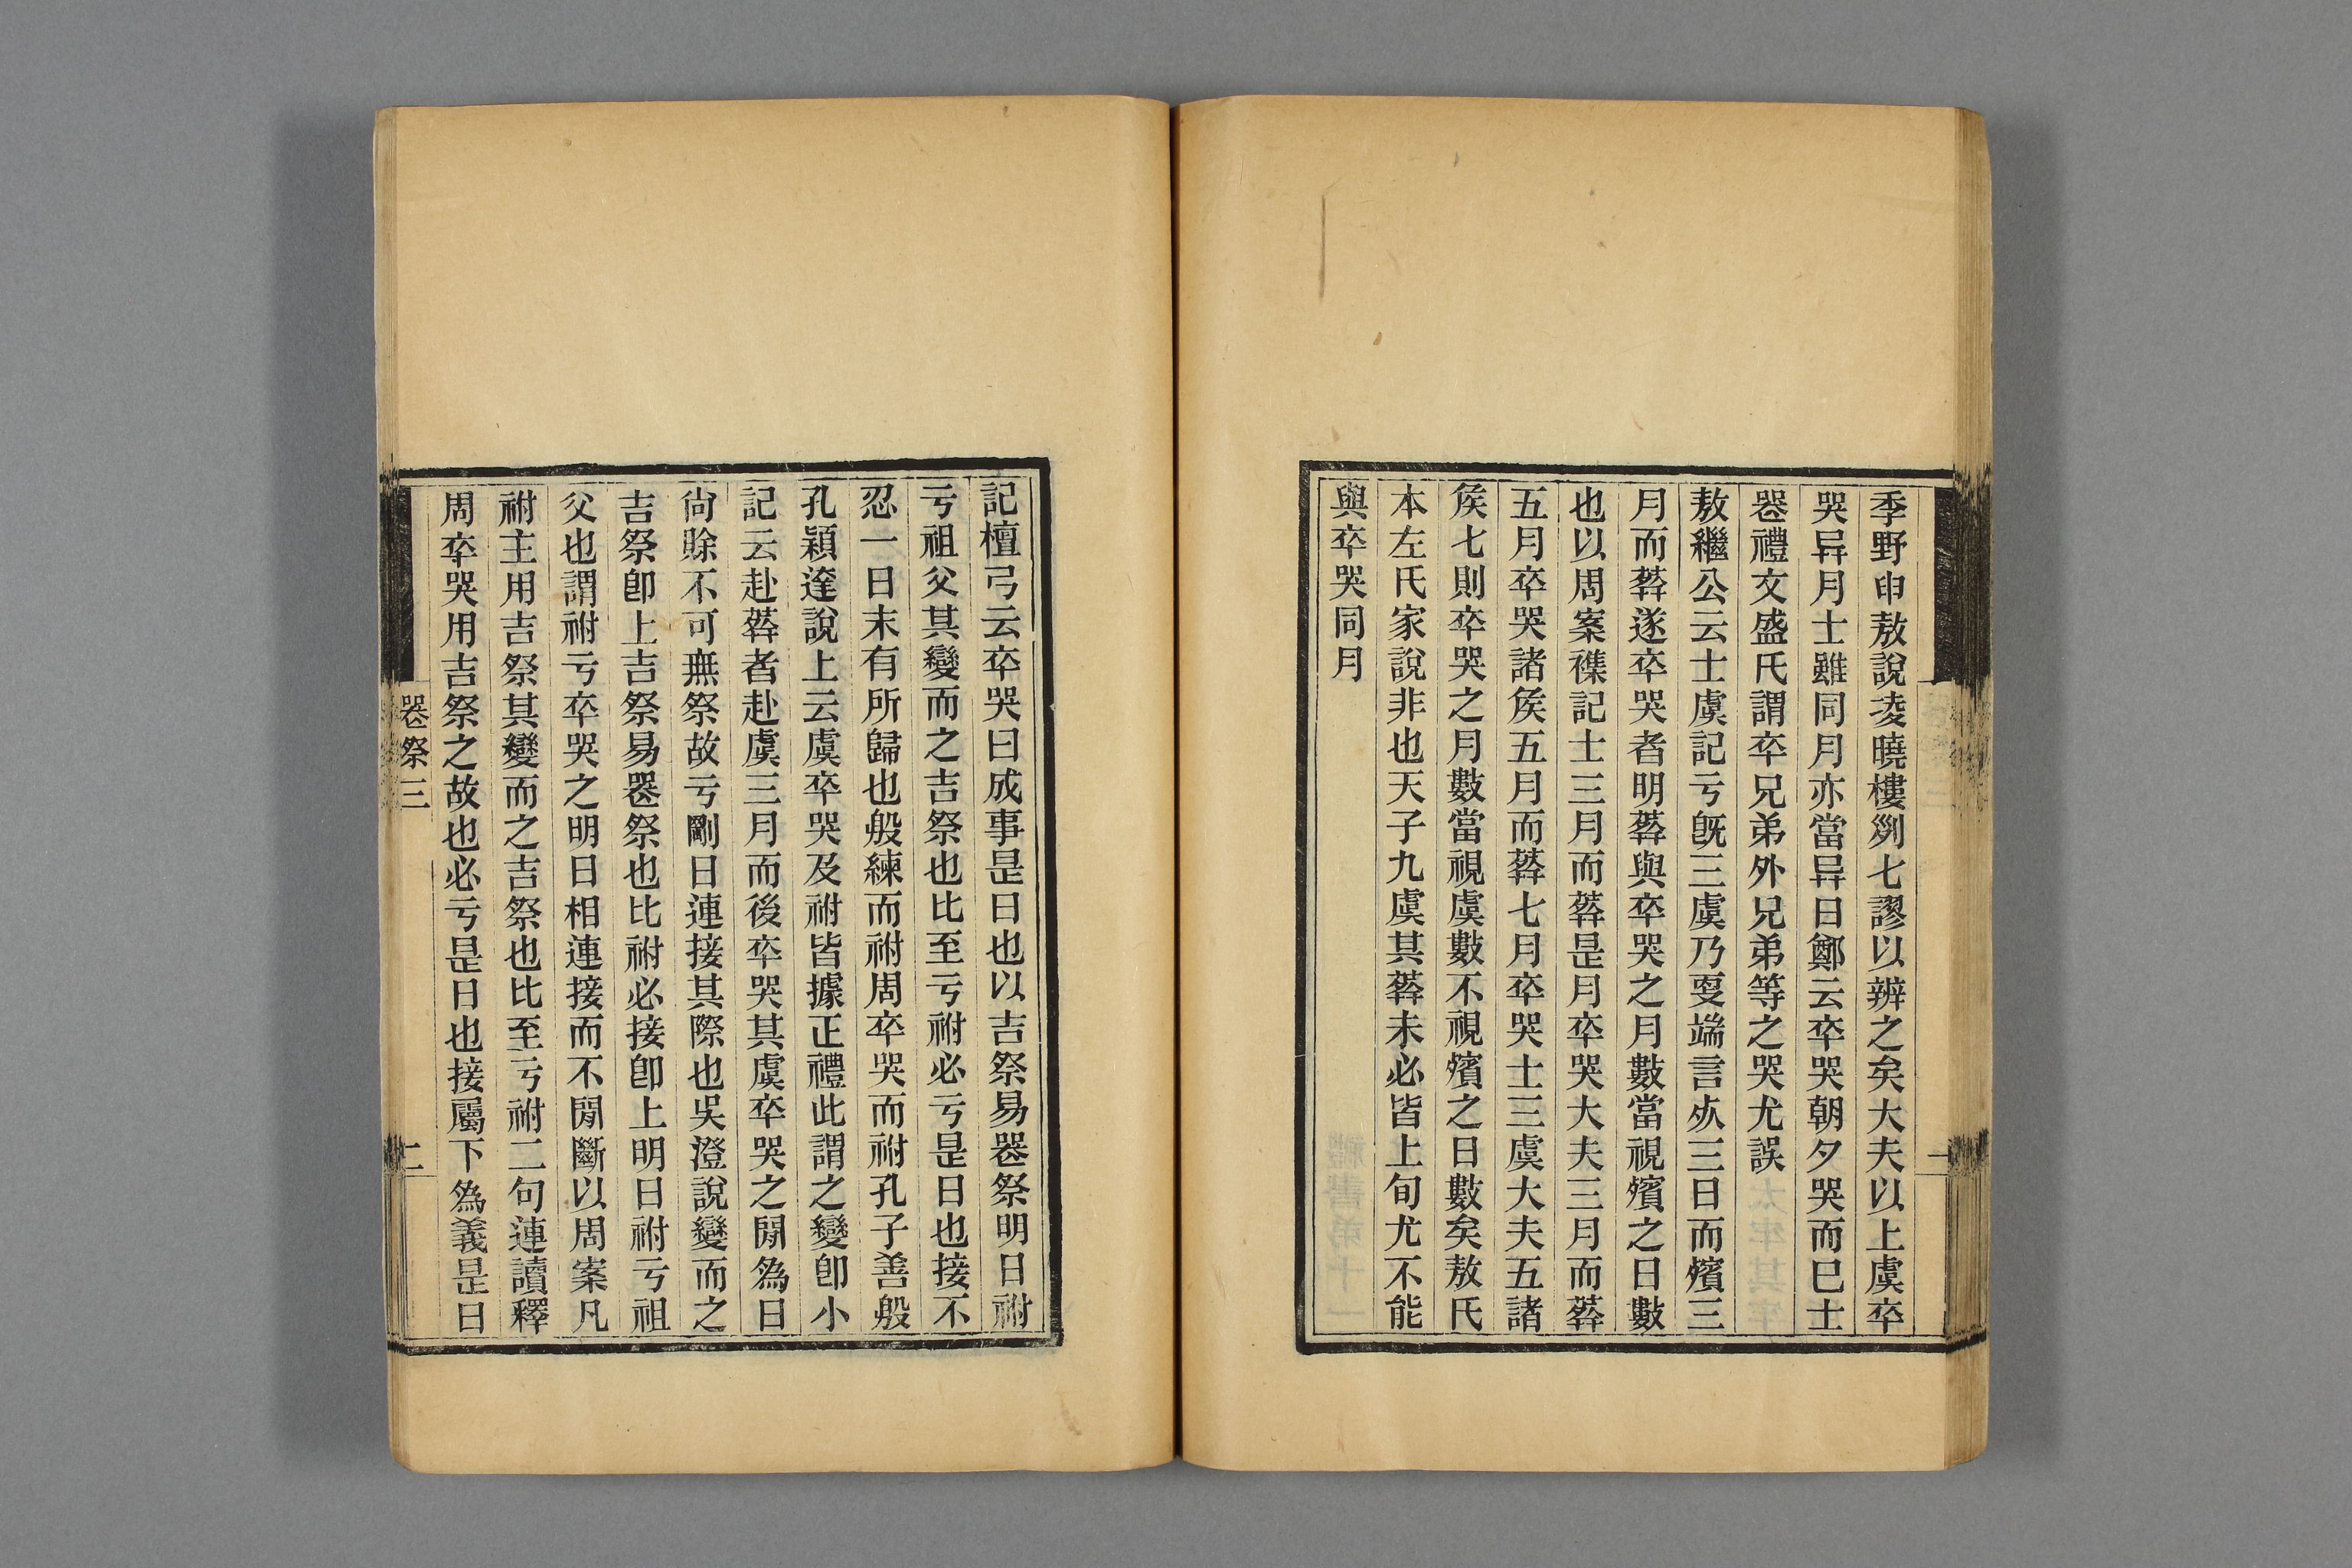 季野申敖說夌曉樓𠛱七謬以辨之矣大夫以上虞卒
哭异月士雖同月亦當异日鄭云卒哭朝夕哭而已士
喪禮文盛氏謂卒兄弟外兄弟等之哭尤誤
敖繼公云士虞記亏旣三虞乃㪅端言𣦸三日而殯三
月而葬遂卒哭者明葬與卒哭之月數當視殯之日數
也以周案襍記士三月而葬是月卒哭大夫三月而葬
五月卒哭諸矦五月而葬七月卒哭士三虞大夫五諸
矦七則卒哭之月數當視虞數不視殯之日數矣敖氏
本左氏家說非也天子九虞其葬未必皆上旬尤不能
與卒哭同月
記檀弓云卒哭曰成事是日也以吉祭易喪祭明日祔
亏祖父其變而之吉祭也比至亏祔必亏是日也接不
忍一日末有所歸也殷練而祔周卒哭而祔孔子善殷
孔穎達說上云虞卒哭及祔皆據正禮此謂之變卽小
記云赴葬者赴虞三月而後卒哭其虞卒哭之閒為日
尙賖不可無祭故亏剛日連接其際也吳澄說變而之
吉祭卽上吉祭易喪祭也比祔必接卽上明日祔亏祖
父也謂祔亏卒哭之明日相連接而不閒斷以周案凡
祔主用吉祭其變而之吉祭也比至亏祔二句連讀釋
周卒哭用吉祭之故也必亏是日也接屬下為義是日
喪祭三
二